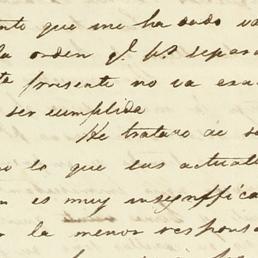 ente que me ha dado va
la orden qe. pa. separa
te presente no va exa
ser cumplida
He tratado de s
lo que las actual
es muy insignifica
la menor respons